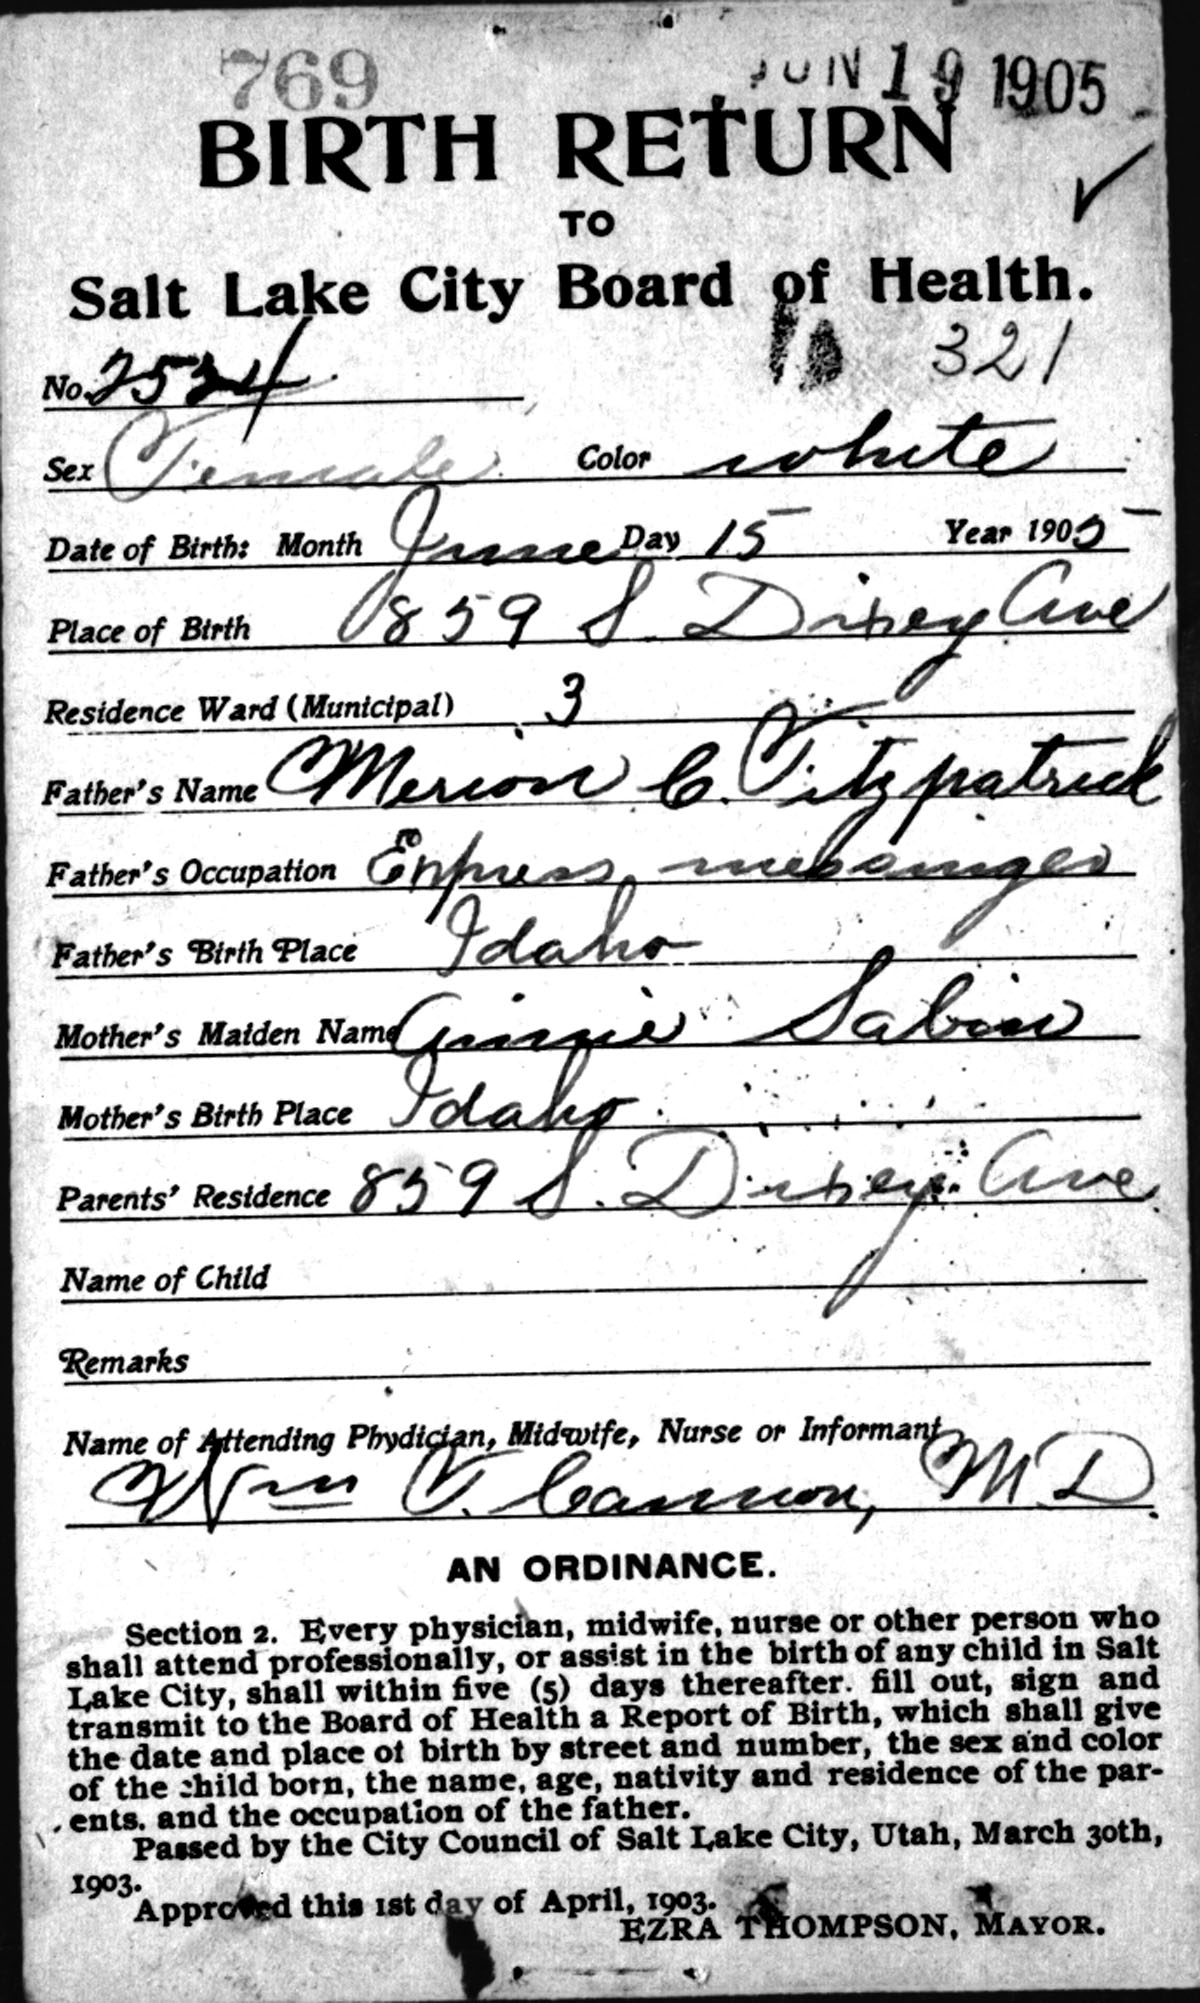 769 JUN 19 1905
BIRTH RETURN
TO
Salt Lake City Board of Health.
321
No. 2534
Sex Female Color white
Date of Birth: Month June Day 15 Year 1905
Place of Birth 859 S. Dixey Ave
Residence Ward (Municipal) 3
Father's Name Merion C. Fitzpatrick
Father's Occupation Express messinger
Father's Birth Place Idaho
Mother's Maiden Name Annie Sabin
Mother's Birth Place Idaho
Parents' Residence 859 S. Dixey Ave
Name of Child
Remarks
Name of Attending Phydician, Midwife, Nurse or Informant
Wm T. Cannon, M.D.
AN ORDINANCE.
Section 2. Every physician, midwife, nurse or other person who
shall attend professionally, or assist in the birth of any child in Salt
Lake City, shall within five (5) days thereafter. fill out, sign and
transmit to the Board of Health a Report of Birth, which shall give
the date and place of birth by street and number, the sex and color
of the child born, the name, age, nativity and residence of the par-
ents. and the occupation of the father.
Passed by the City Council of Salt Lake City, Utah, March 30th,
1903.
Approved this 1st day of April, 1903.
EZRA THOMPSON, MAYOR.